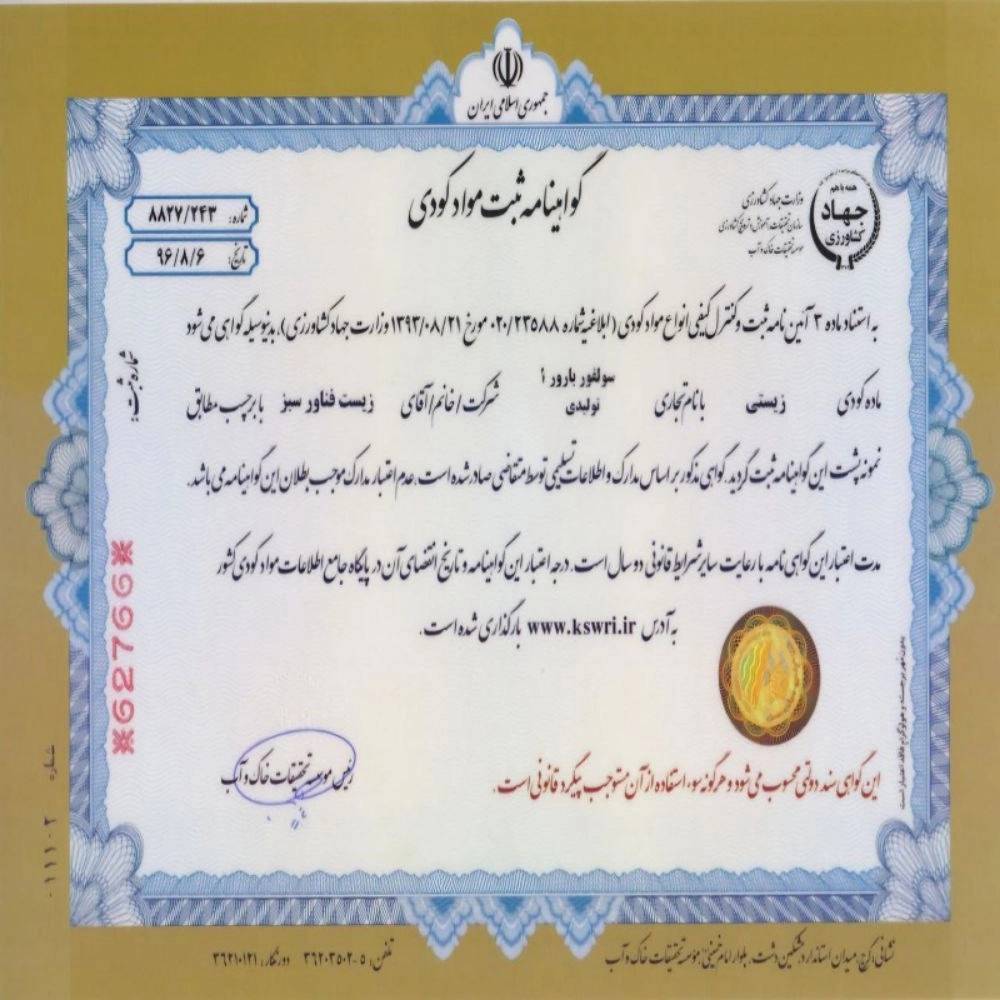 جمهوری اسلامی ایران
همه با هم
جهاد
کشاورزی
وزارت جهاد کشاورزی
سازمان تحقیقات، آموزش و ترویج کشاورزی
موسسه تحقیقات خاک و آب
گواهینامه ثبت مواد کودی
شماره: ۸۸۲۷/۲۴۳
تاریخ: ۹۶/۸/۶
به استناد ماده ۳ آئین نامه ثبت و کنترل کیفی انواع مواد کودی (ابلاغیه شماره ۰۲۰/۲۳۵۸۸ مورخ ۱۳۹۳/۰۸/۲۱ وزارت جهاد کشاورزی)، بدینوسیله گواهی می شود
ماده کودی زیستی با نام تجاری سولفور بارور ۱ تولیدی شرکت / خانم / آقای زیست فناور سبز با برچسب مطابق
نمونه پشت این گواهینامه ثبت گردید. گواهی مذکور بر اساس مدارک و اطلاعات تسلیمی توسط متقاضی صادر شده است. عدم اعتبار مدارک موجب بطلان این گواهینامه می باشد.
مدت اعتبار این گواهی نامه با رعایت سایر شرایط قانونی دو سال است. درجه اعتبار این گواهینامه و تاریخ انقضای آن در پایگاه جامع اطلاعات مواد کودی کشور
به آدرس www.kswri.ir بارگذاری شده است.
شماره ثبت:
*62766*
رئیس موسسه تحقیقات خاک و آب
این گواهی سند دولتی محسوب می شود و هرگونه سوء استفاده از آن مستوجب پیگرد قانونی است.
بدون مهر برجسته و هولوگرام فاقد اعتبار است
شماره ۰۱۱۱۰۲
نشانی: کرج، میدان استاندارد، مشکین دشت، بلوار امام خمینی، موسسه تحقیقات خاک و آب
تلفن: ۵-۳۶۲۰۳۵۰۲ دورنگار: ۳۶۲۱۰۱۲۱